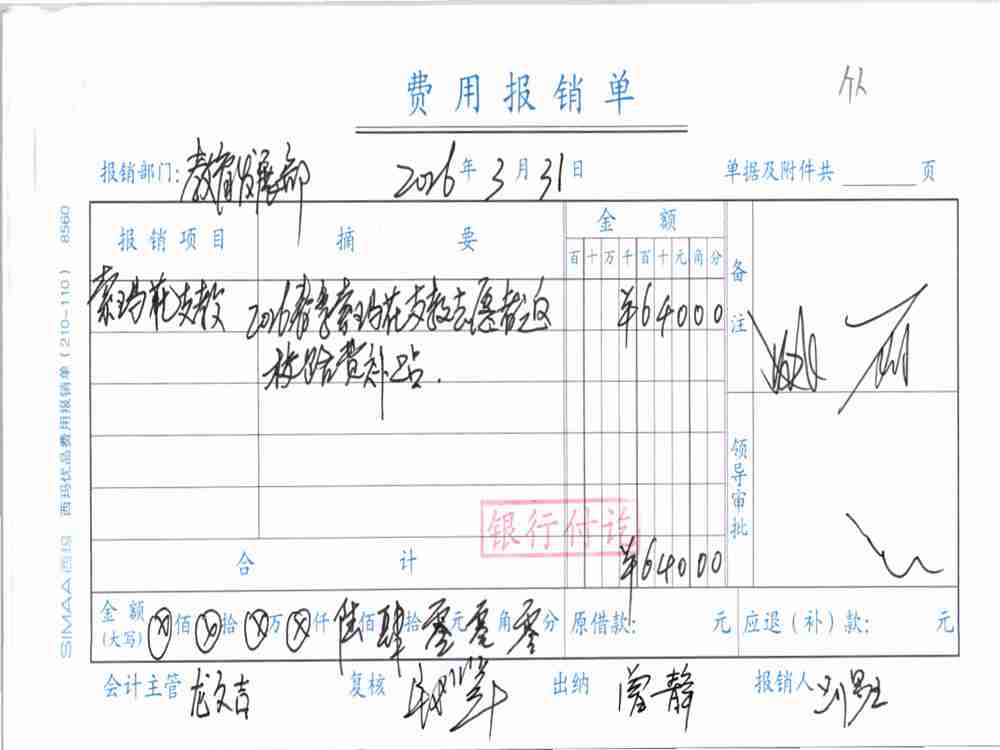 费用报销单
报销部门：教育发展部 2026年3月31日 单据及附件共 页
报销项目 摘要 金额 备注
百十万千百十元角分
索玛花支教 2026春季索玛花支教志愿者返 ¥64000
校路费补贴.
领导审批
银行付讫
合计 ¥64000
金额(大写) ⊗佰⊗拾⊗万⊗仟陆佰肆拾零元零角零分 原借款: 元 应退（补）款: 元
会计主管 龙文吉 复核 出纳 曾静 报销人
SIMAA 西玛 西玛优品费用报销单（210-110） 8560